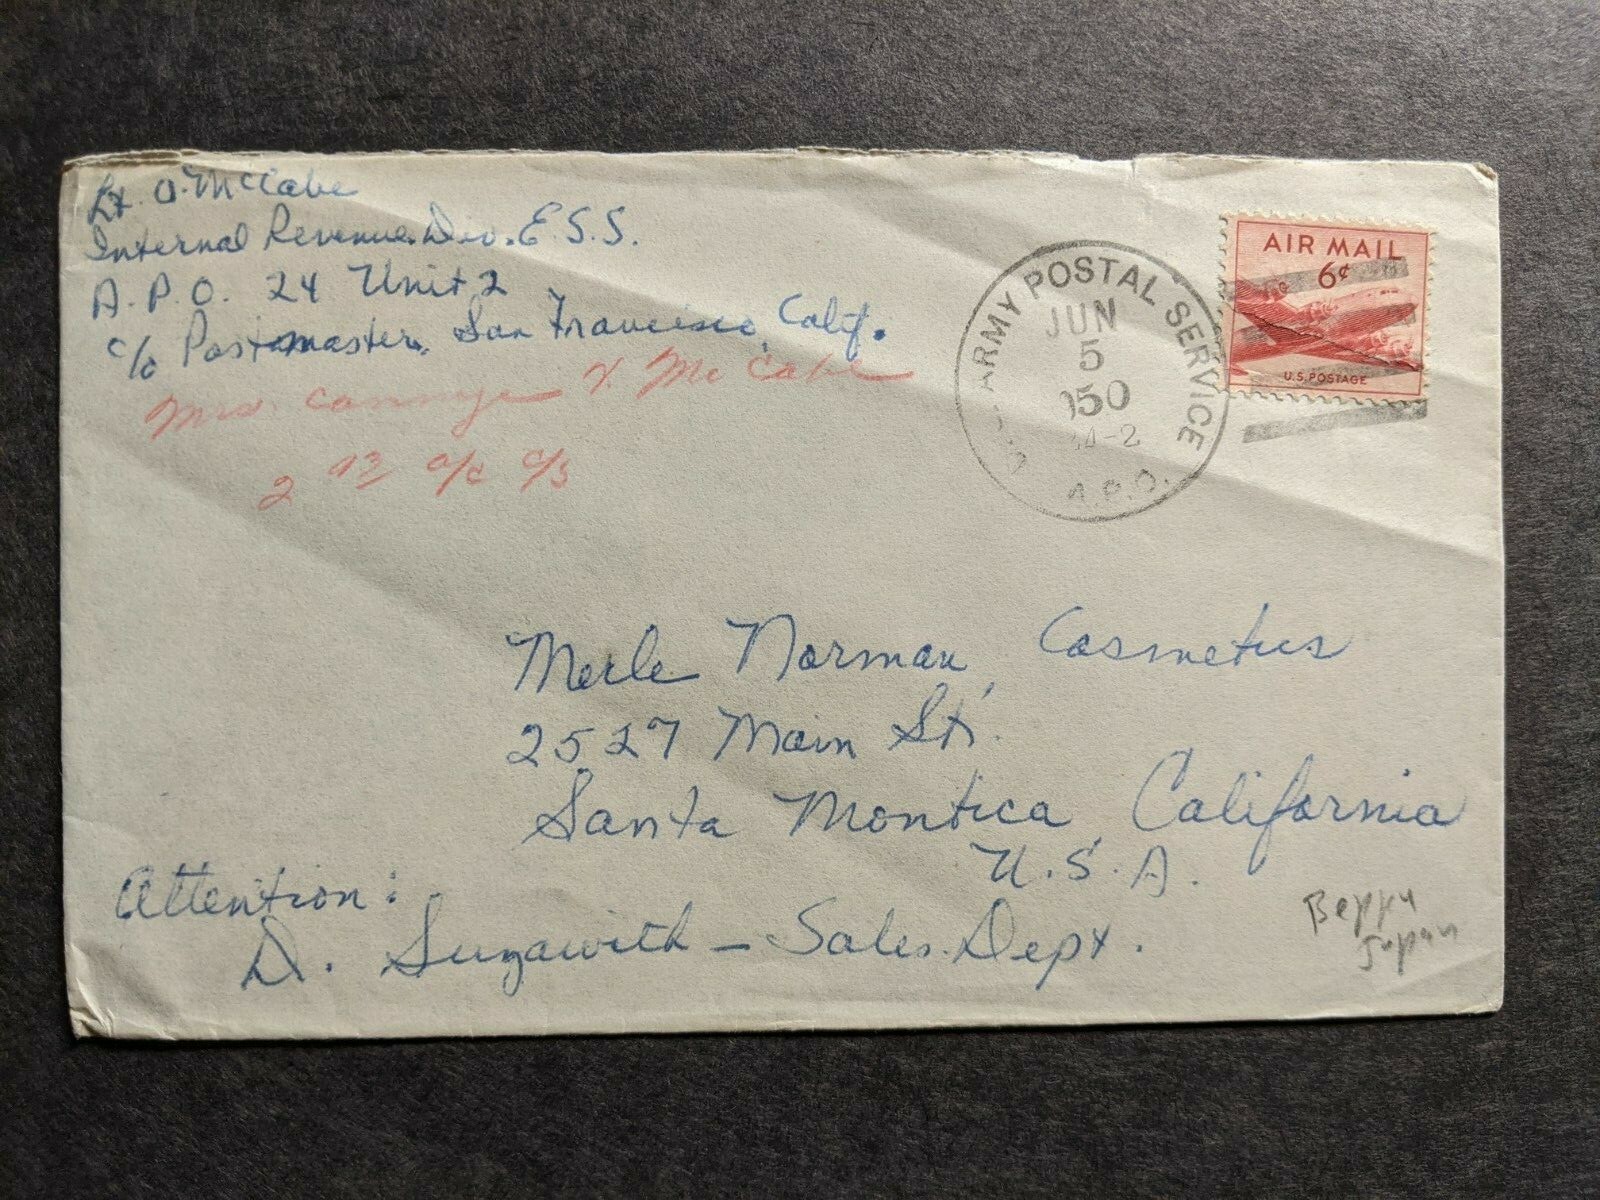 Lt. O. McCabe
Internal Revenue. Div. E.S.S.
A.P.O. 24 Unit 2
c/o Postmaster, San Francisco, Calif.
Mrs. McCabe
2
ARMY POSTAL SERVICE
JUN
5
950
A.P.O.
AIR MAIL
6¢
U.S. POSTAGE
Merle Norman Cosmetics
2527 Main St.
Santa Montica, California
U.S.A.
Attention:
D. – Sales. Dept.
Beppu
Japan